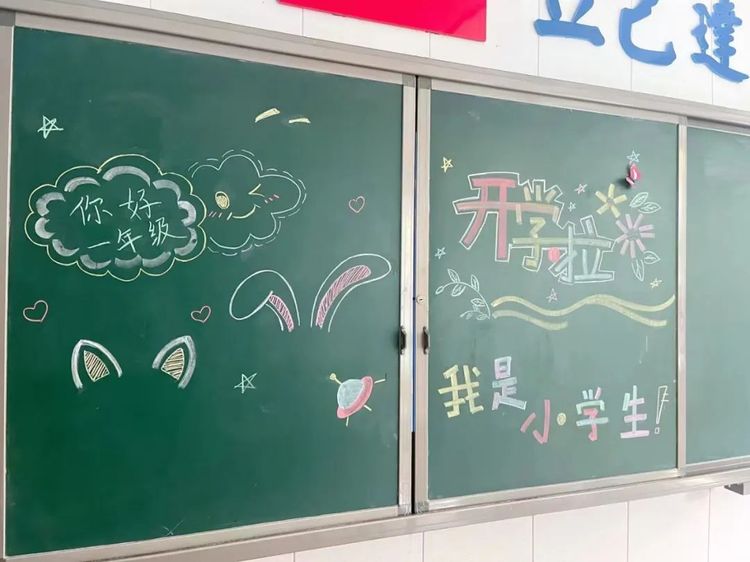 立己达
你好
一年级
开学拉
我是
小学生!